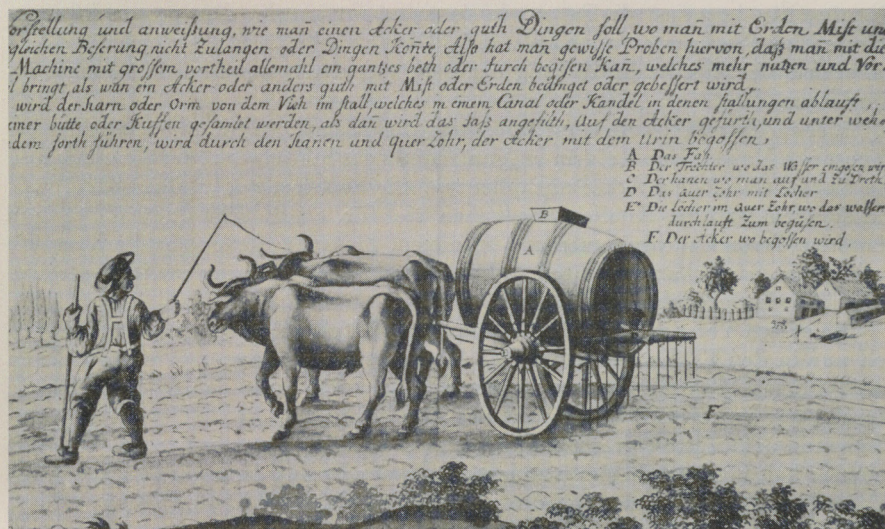 Vorstellung und anweißung, wie mañ einen Acker oder guth Dingen soll, wo mañ mit Erden Mist un
gleichen Beserung nicht Zulangen oder Dingen Köñte, Also hat mañ gewisse Proben hiervon, daß mañ mit die
Machine mit grossem vortheil allemahl ein gantzes beth oder furch begisen Kañ, welches mehr nutzen und Vor
l bringt, als wän ein Acker oder anders guth mit Mist oder Erden bedinget oder gebessert wird,
wird der harn oder Orin von dem Vieh im stall, welches in einem Canal oder Kandel in denen stallungen ablauft,
einer bütte oder Kuffen gesamlet werden, als dañ wird das faß angefült, Auf den Acker gefürth, und unter weh
dem forth führen, wird durch den hanen und quer Rohr, der Acker mit dem Urin begossen,
A Das Faß
B Der Trächter wo das Wasser eingosen wir
C Der hanen wo man auf und zu Dreth
D Das quer Rohr mit Locher
E Die Löcher im quer Rohr, wo das wasser
durchlauft Zum begüsen.
F Der Acker wo begossen wird,
B
A
F